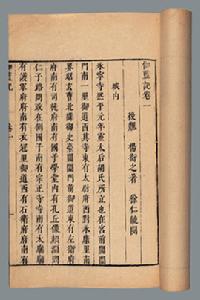 伽藍記卷一
後魏 楊衒之著 徐仁毓閱
城內
永寧寺熙平元年靈太后胡氏所立也在宮前閶闔
門南一里御道西其寺東有太尉府西對永康里南
界昭玄曹北鄰御史臺閶闔門前御道東有左衛府
府南有司徒府司徒府南有國子學堂內有孔丘像顏淵問
仁子路問政在側國子南有宗正寺寺南有太廟廟
南有護軍府府南有衣冠里御道西有右衛府府南